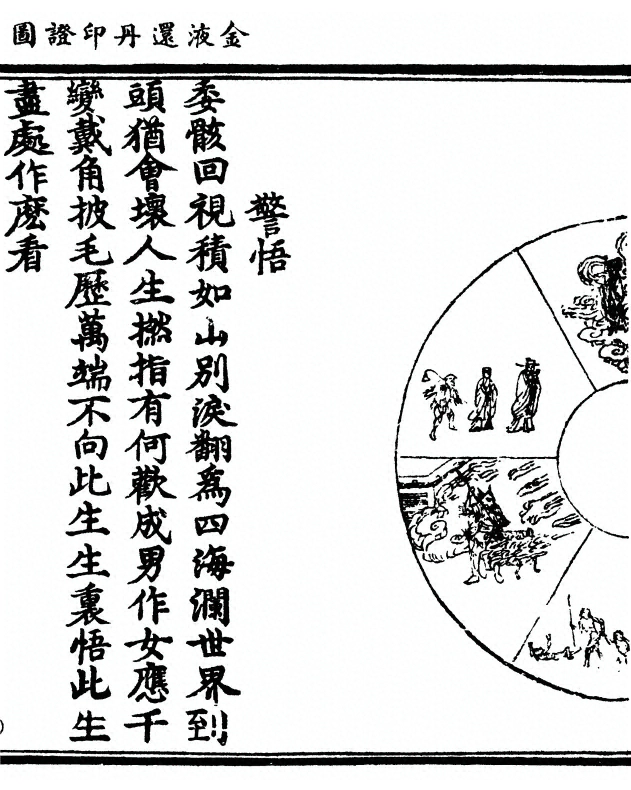 金液還丹印證圖
警悟
委骸回視積如山別淚翻為四海瀾世界到
頭猶會壞人生撚指有何歡成男作女應千
變戴角披毛歷萬端不向此生生裏悟此生
盡處作麽看